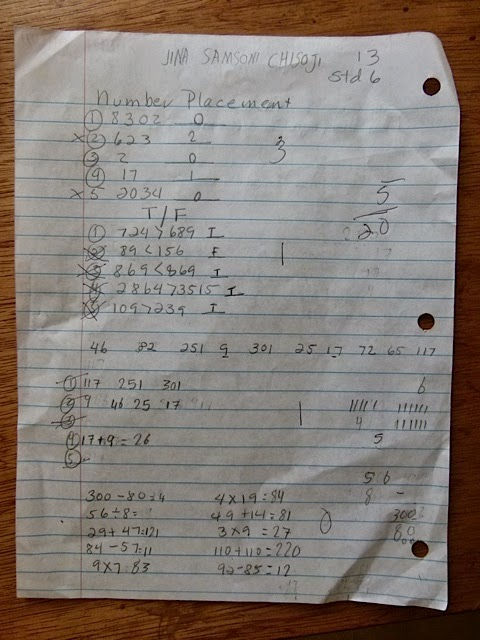 JINA SAMSONI CHISOJI 13
Std 6
Number Placement
① 8302 0
x ② 623 2
3
③ 2 0
④ 17 1
x 5 2034 0
5
20
T/F
① 724 > 689 I
② 89 < 156 F
1
③ 869 < 869 I
④ 286473515 I
⑤ 109 > 239 I
46 82 251 9 301 25 17 72 65 117
① 117 251 301 6
② 9 46 25 17
③ 1
4
④ 17+9=26 5
⑤
56
8 -
300 - 80 = 4 4 x 19 = 84
56 ÷ 8 = 49 + 14 = 81 0
29 + 47 = 121 3 x 9 = 27
84 - 57 = 11 110 + 110 = 220
9 x 7 = 83 92 - 85 = 12